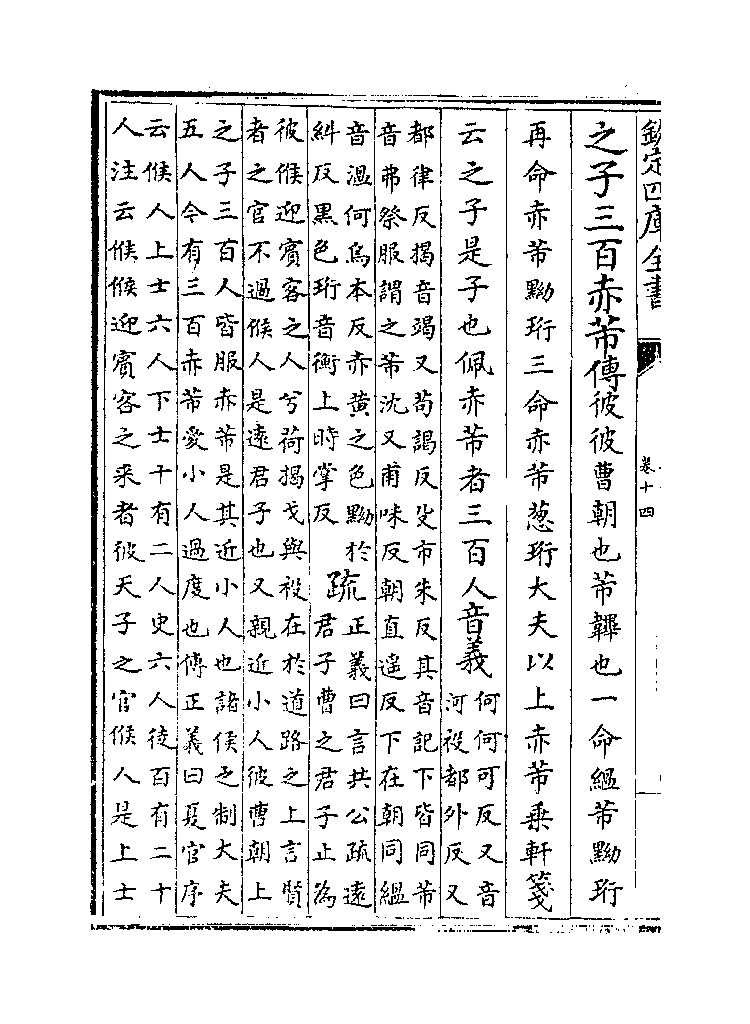 欽定四庫全書
卷十四
之子三百赤芾傳彼彼曹朝也芾韠也一命縕芾黝珩
再命赤芾黝珩三命赤芾葱珩大夫以上赤芾乗軒箋
云之子是子也佩赤芾者三百人音義何何可反又音
河祋都外反又
都律反揭音竭又苟謁反殳市朱反其音記下皆同芾
音弗祭服謂之芾沈又甫味反朝直遥反下在朝同縕
音温何烏本反赤黄之色黝於
糾反黒色珩音衡上時掌反
疏正義曰言共公疏遠
君子曹之君子止為
彼候迎賓客之人兮荷揭戈與祋在於道路之上言賢
者之官不過候人是遠君子也又親近小人彼曹朝上
之子三百人皆服赤芾是其近小人也諸侯之制大夫
五人今有三百赤芾愛小人過度也傳正義曰夏官序
云候人上士六人下士十有二人史六人徒百有二十
人注云候候迎賓客之来者彼天子之官候人是上士